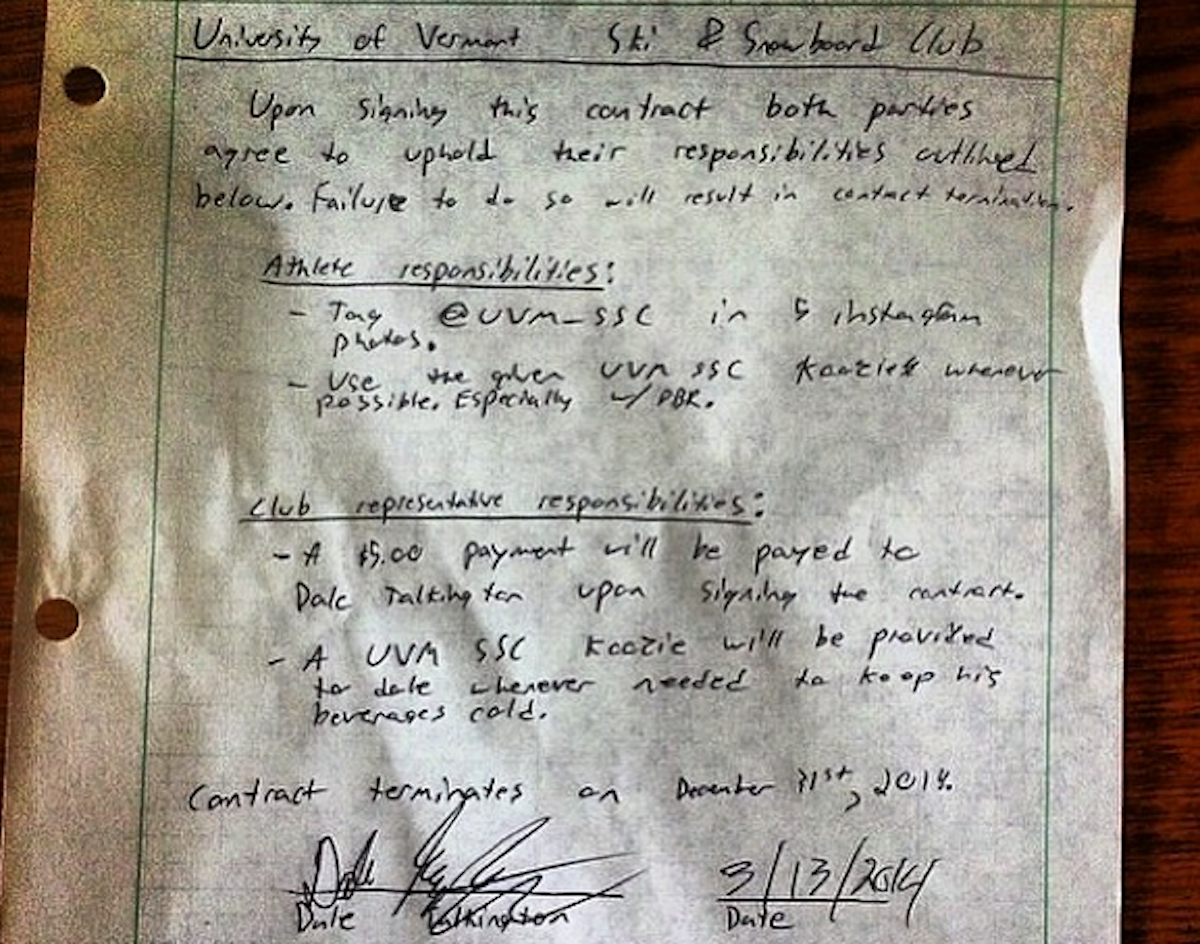 University of Vermont Ski & Snowboard Club
Upon signing this contract both parties
agree to uphold their responsibilities outlined
below. Failure to do so will result in contract termination.
Athlete responsibilities:
- Tag @UVM_SSC in 5 instagram
photos.
- Use the given UVM SSC Koozie whenever
possible. Especially w/ PBR.
Club representative responsibilities:
- A $5.00 payment will be payed to
Dale Talkington upon signing the contract.
- A UVM SSC Koozie will be provided
to dale whenever needed to keep his
beverages cold.
Contract terminates on December 31st, 2014.
Dale Talkington 3/13/2014
Dale Talkington Date